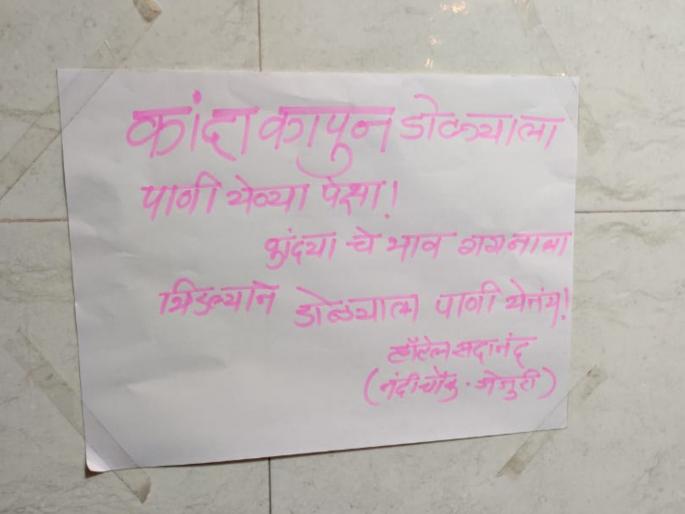 कांदा कापुन डोळ्याला
पाणी येण्या पेक्षा!
कांद्या चे भाव गगनाला
भिडल्यानं डोळ्याला पाणी येतंय!
हॉटेल सदानंद
(नंदी चौक. जेजुरी)